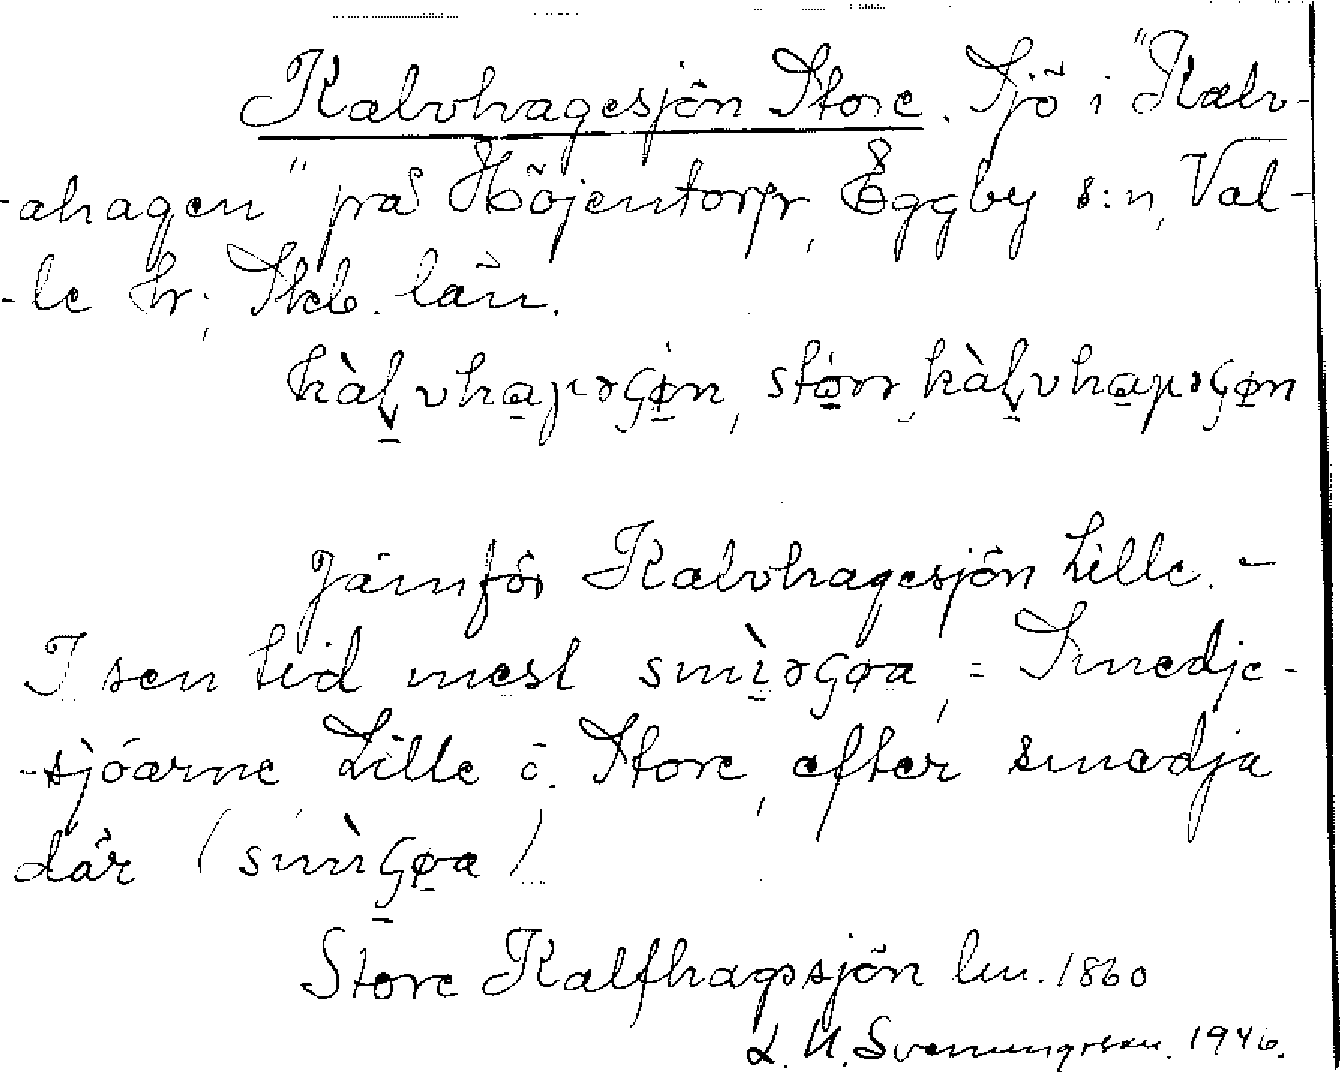 Kalvhagesjön Store. Sjö i "Kalv-
-ahagen" på Höjentorp, Eggby s:n, Val-
-le hr; Skb. län.
kàļvhaɲəɕøn, störr kàļvhaɲəɕøn
Jämför Kalvhagesjön Lille. -
I sen tid mest smìəɕøa, = Smedje-
-sjöarne Lille o. Store, efter smedja
där (smìɕøa)
Store Kalfhagssjön lm. 1860
L. U. Svenungsson. 1946.